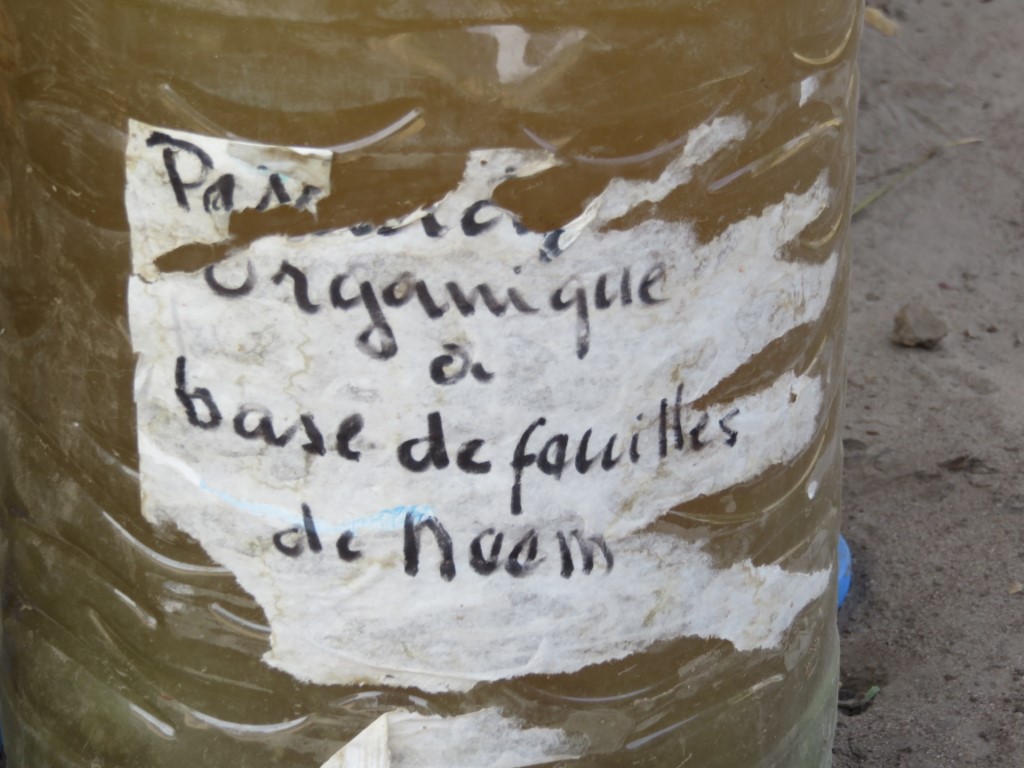 organique
a
base de fauilles
de Neem